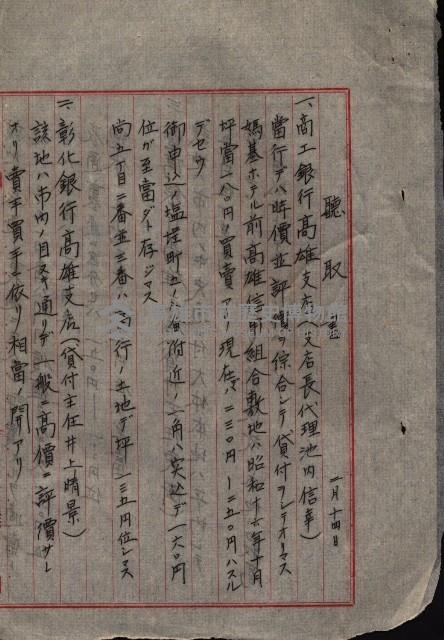 聽取書
二月十四日
一、商工銀行高雄支店(支店長代理池内信幸)
當行デハ時價並評價ヲ綜合シテ貸付ヲシテオリマス
基ホテル前高雄信用組合敷地ハ昭和十六年十月
坪當一八〇円ノ買賣アリ現在ハ二三〇円―二五〇円ハスル
デセウ
御申込ノ塩埕町五ノ附近ノ一角ハ実込デ一六〇円
位ガ至當ダト存ジマス
尚五丁目二番並三番ハ當行ノ土地デ坪一三五円位シマス
二、彰化銀行高雄支店(貸付主任井上晴景)
該地ハ市内ノ目ヌキ通リデ一般ニ高價ニ評價サレ
オリ賣手買手ニ依リ相當ノ開アリ